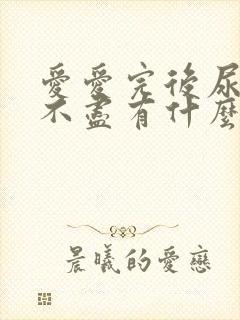 愛愛完後尿
不盡有什麼
晨曦的愛戀